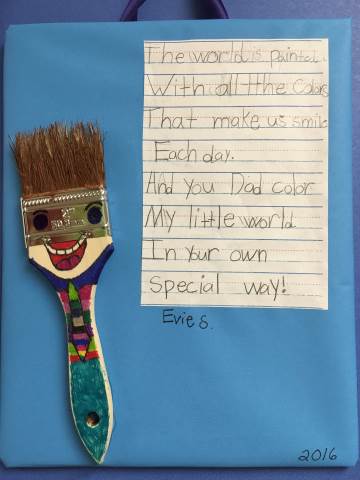 The world is painted.
With all the Colors
That make us smile
Each day.
And you Dad color
My little world
In your own
Special way!
Evie S.
2016